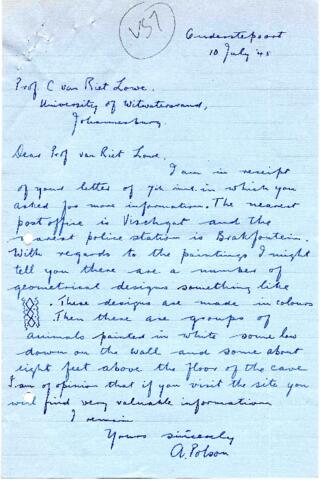 V57
Onderstepoort
10 July '45
Prof. C van Riet Lowe.
University of Witwatersrand,
Johannesburg.
Dear Prof van Riet Lowe.
I am in receipt
of your letter of 7th inst. in which you
asked for more information. The nearest
post office is Vischgat and the
nearest police station is Brakfontein.
With regards to the paintings I might
tell you there are a number of
geometrical designs something like
. These designs are made in colours
. Then there are groups of
animals painted in white some low
down on the wall and some about
eight feet above the floor of the cave
I am of opinion that if you visit the site you
will find very valuable information
I remain
Yours sincerely
A. Polson